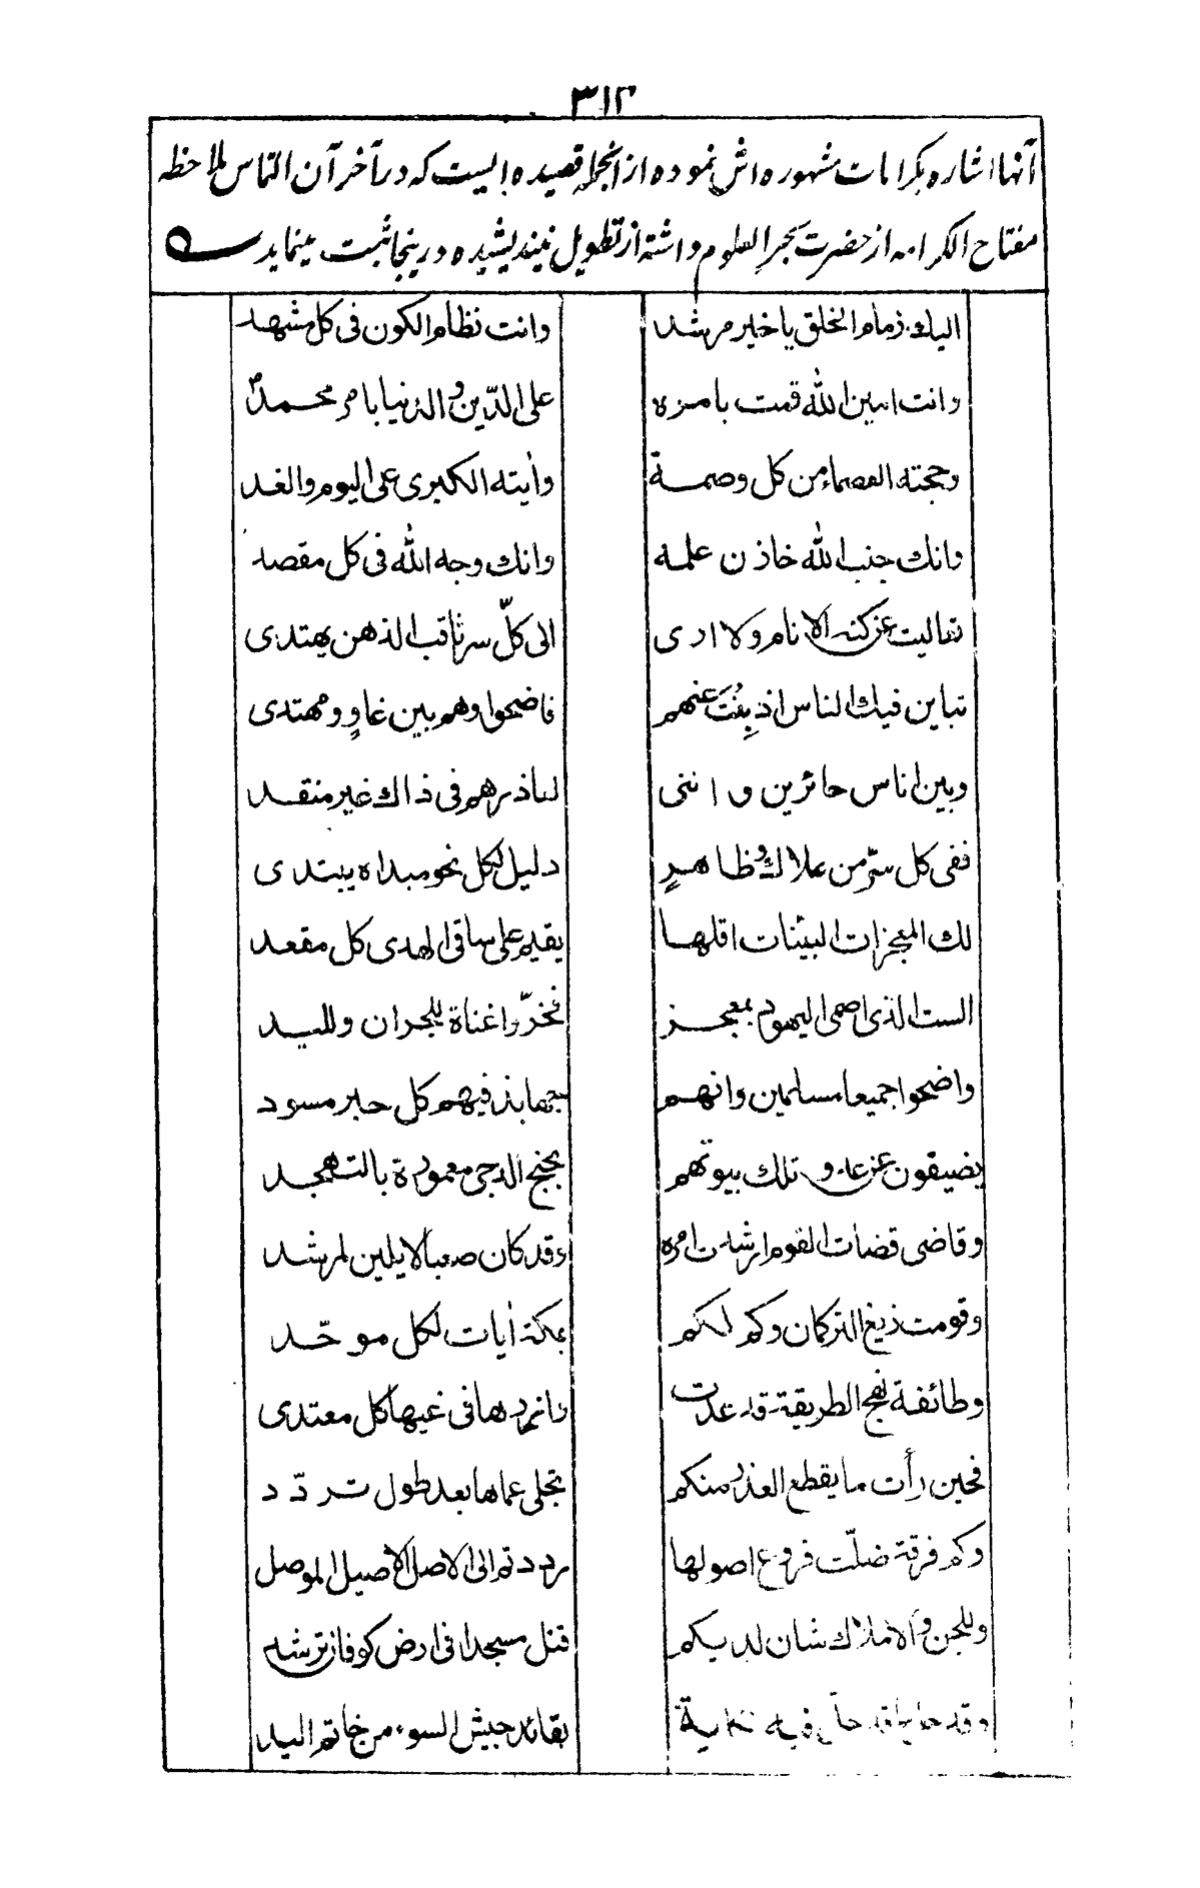 ۳۱۴
آنها اشاره بکرامات مشهوره اش نموده از انجمله قصیده ایست که در آخر آن التماس ملاحظه
مفتاح الکرامه از حضرت بحر العلوم داشته از تطویل نیندیشیده درینجا ثبت مینماید
الیك زمام الخلق یا خیر مرشد وانت نظام الکون فی کل مشهد
وانت امین الله قمت بامره علی الدّین والدنیا بامر محمد
وحجته العصماء من کل وصمة وآیته الکبری علی الیوم والغد
وانك جنب الله خازن علمه وانك وجه الله فی کل مقصد
تعالیت عن کنه الانام ولا اری الی کلّ سر ثاقب الذهن یهتدی
تباین فیك الناس اذ بِنْتَ عنهم فاضحوا وهم بین غاوٍ ومهتدی
وبین اناس حائرین و اننی لما ذرهم فی ذاك غیر منقد
ففی کل سرّ من علاك وظاهرٍ دلیل لکل نحو مبداه یبتدی
لك المعجزات البینات اقلها یقیم علی ساق الهدی کل مقعد
الست الذی اصمی الیهود بمعجز فخرّوا
واضحوا جمیعا مسلمین وانهم جهابذ فیهم کل حبر مسود
یضیقون عن وتلك بیوتهم بجنح الدجی معمورة بالتهجد
وقاضی قضات القوم ارشدت امره وقد کان صعبا لا یلین لمرشد
وقومت زیغ الترکمان وکم لکم بمکة آیات لکل موحّد
وطائفة نهج الطریقة قد عدت کل معتدی
فحین رأت ما یقطع العذر منکم تجلی عماها بعد طول تردّد
وکم فرقة ضلّت فروع اصولها رددتم الی الاصل الاصیل الموصل
وللجن والاملاك شان لدیکم فسل مسجدا فی ارض کوفان ترشد
وقد بقائد جیش السوء من خاتم الید